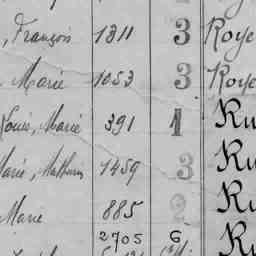 , François 1311 3 Roye
, Marie 1053 3 Roye
Louis, Marie 391 1 Ru
Marie, Mathurin 1459 3 Ru
Marie 885 2 Ru
2705 6 Ru